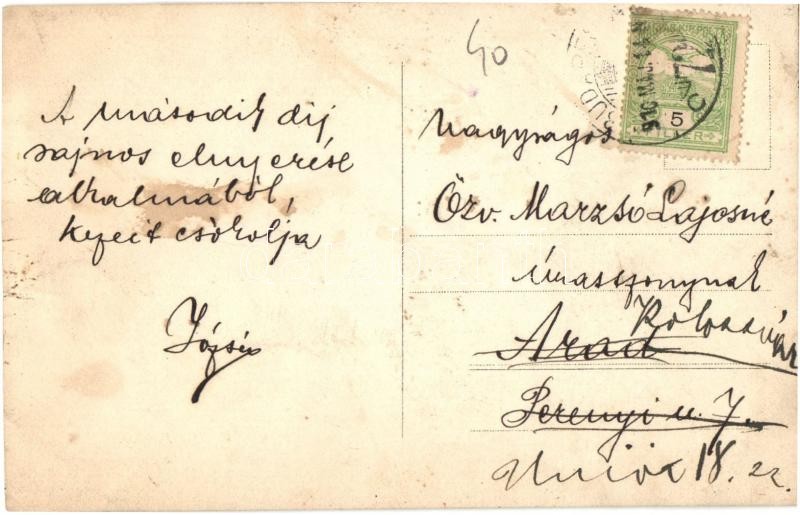 40
A második díj
sajnos elnyerése
alkalmából,
kezeit csókolja
Józsi
Nagyságos
Özv. Marzsó Lajosné
úrasszonynak
Kolozsvár
Arad
Perenyi u. 7.
Unió 18. sz.
BUDAP
910 MÁJ
5